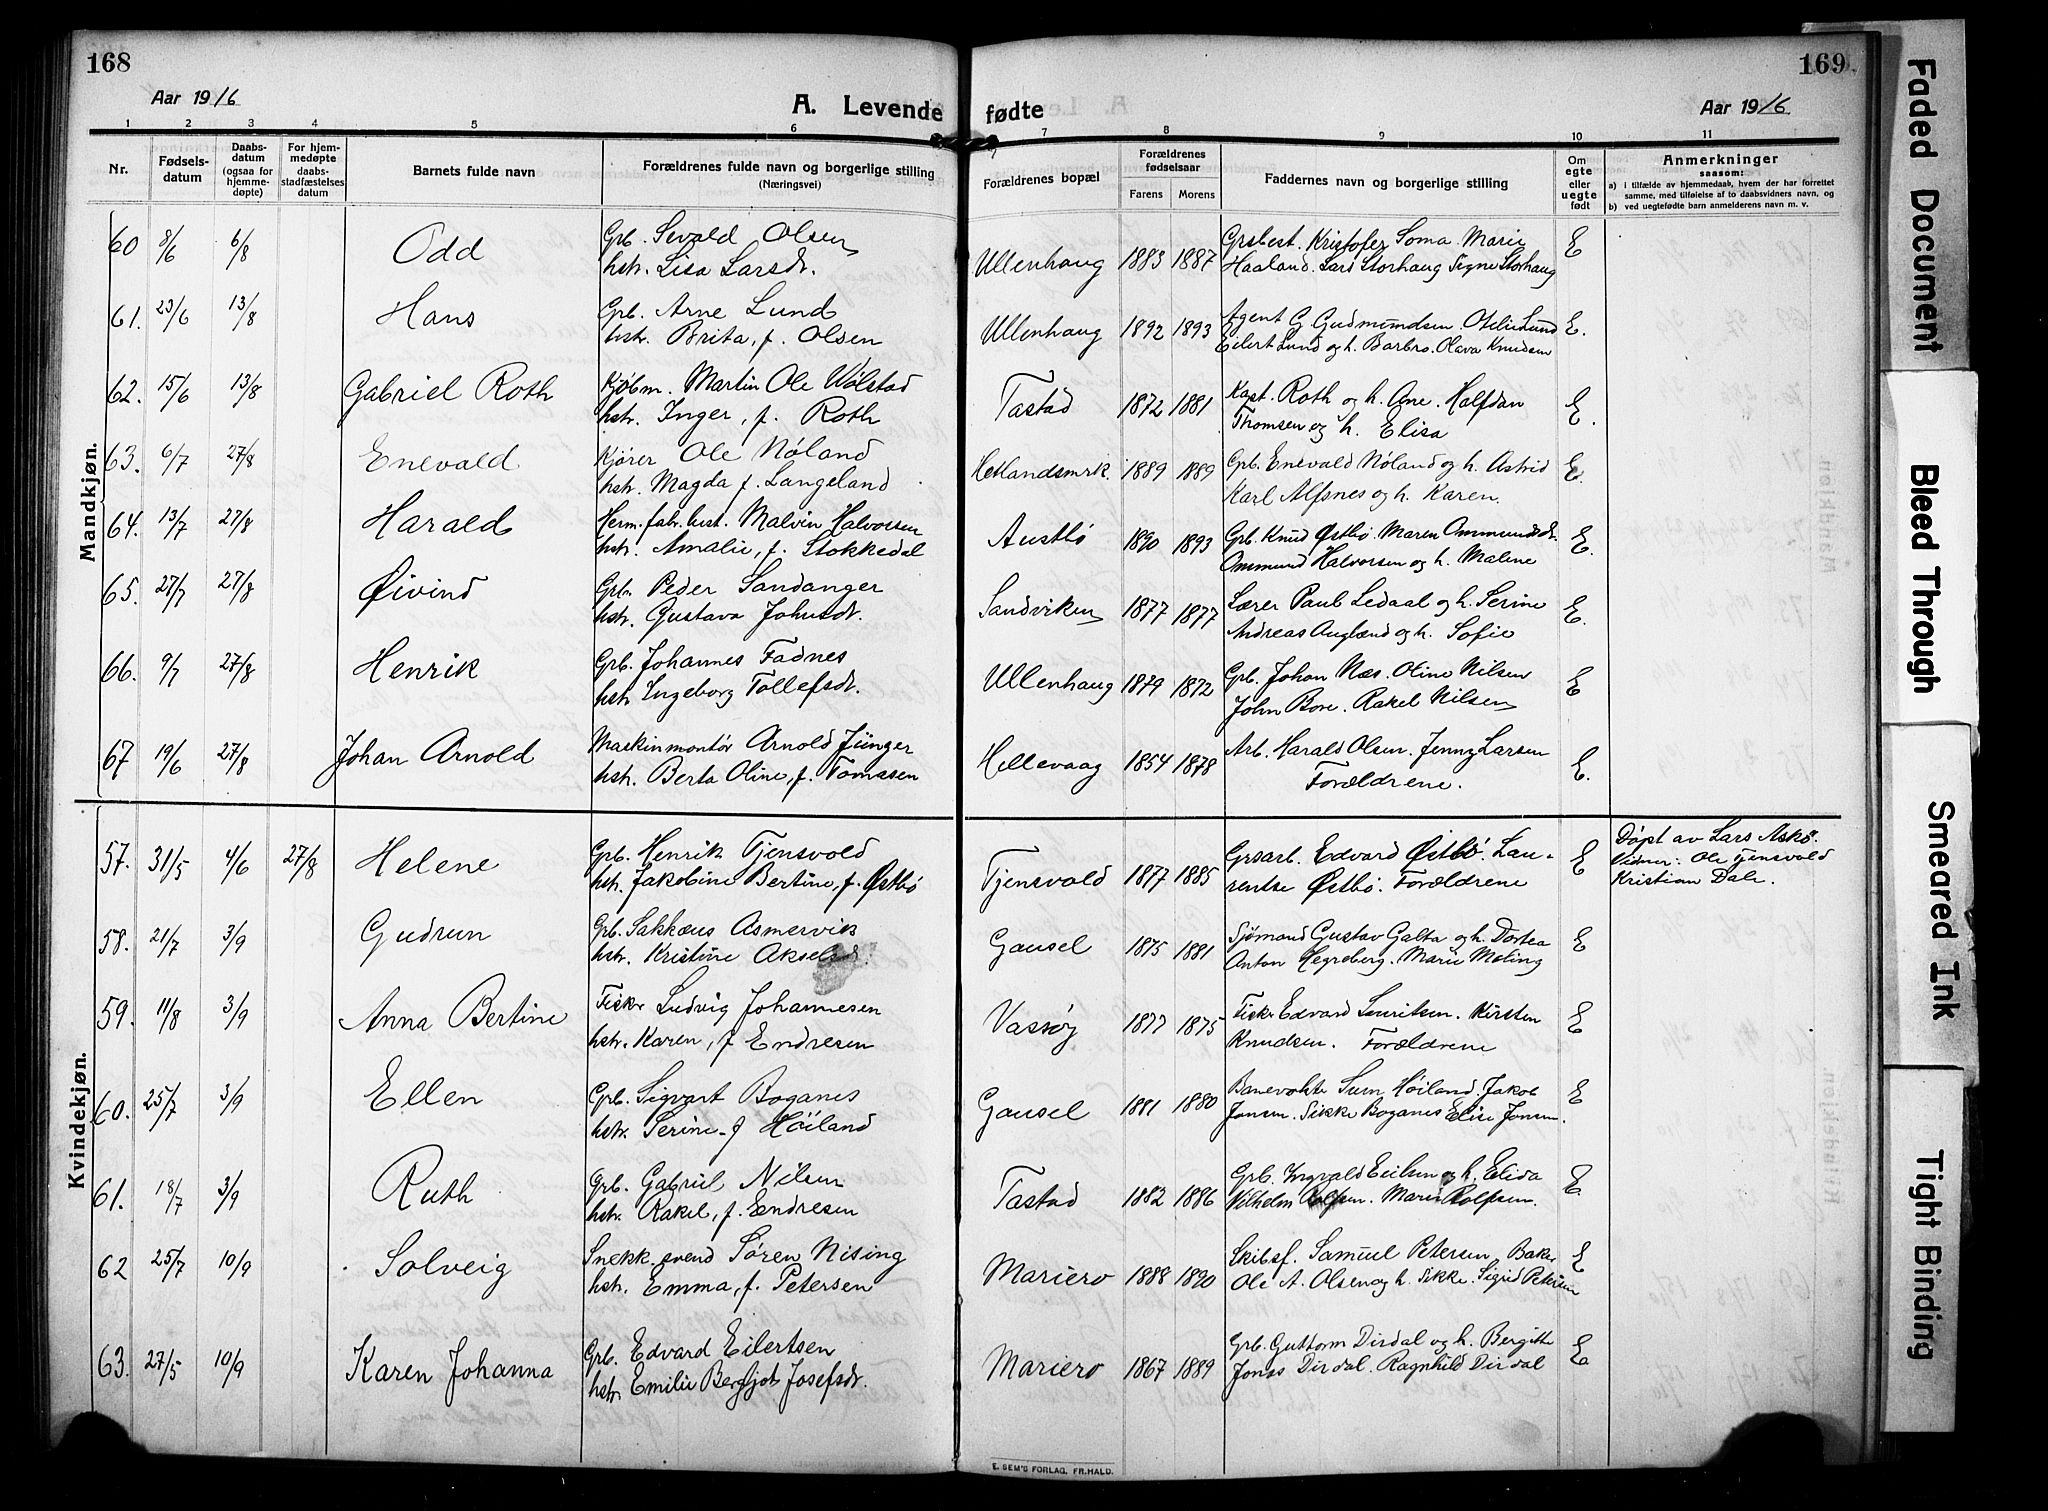 168
Aar 1916
A. Levende fødte
Aar 1916
169
1 2 3 4 5 6 7 8 9 10 11
Nr.
Fødsels-
datum
Daabs-
datum
(ogsaa for
hjemme-
døpte)
For hjem-
medøpte
daabs-
stadfæstelses
datum
Barnets fulde navn
Forældrenes fulde navn og borgerlige stilling
(Næringsvei)
Forældrenes bopæl
Forældrenes
fødselsaar
Farens Morens
Faddernes navn og borgerlige stilling
Om
egte
eller
uegte
født
Anmerkninger
saasom:
a) i tilfælde av hjemmedaab, hvem der har forrettet
samme, med tilføielse af to daabsvidners navn, og
b) ved uegtefødte barn anmelderens navn m. v.
Mandkjøn.
60 8/6 6/8 Odd Grb. Sevald Olsen
hstr. Lisa Larsdr. Ullenhaug 1883 1887 Grsbest. Kristofer Soma. Marie
Haaland. Lars Storhaug Signe Storhaug E
61. 23/6 13/8 Hans Grb. Arne Lund
hstr. Brita, f. Olsen Ullenhaug 1892 1893 Agent G Gudmundsen. Otelie Lund
Eilert Lund og h. Barbro. Olava Knudsen E.
62. 15/6 13/8 Gabriel Roth Kjøbm. Martin Ole Wølstad
hstr. Inger, f. Roth Tastad 1872 1881 Kapt. Roth og h. Ane. Halfdan
Thomsen og h. Elisa E.
63. 6/7 27/8 Enevald Kjører Ole Nøland
hstr. Magda f. Langeland Hetlandsmrk. 1889 1889 Grb. Enevald Nøland og h. Astrid
Karl Alfsnes og h. Karen. E.
64. 13/7 27/8 Harald Herm. fabr. best. Malvin Halvorsen
hstr. Amalie, f. Stokkedal Austbø 1890 1893 Grb. Knud Østbø. Maren Ommundsdr.
Ommund Halvorsen og h. Malene E.
65. 27/7 27/8 Øivind Grb. Peder Sandanger
hstr. Gustava Johnsdr. Sandviken 1877 1877 Lærer Paul Ledaal og h. Serine
Andreas Augland og h. Sofie E.
66. 9/7 27/8 Henrik Grb. Johannes Fadnes
hstr. Ingeborg Tollefsdr. Ullenhaug 1879 1872 Grb. Johan Næs. Oline Nilsen
John Bore. Rakel Nilsen E
67 19/6 27/8 Johan Arnold Maskinmontør Arnold Jünger
hstr. Berta Oline, f. Tomssen Hillevaag 1854 1878 Arb. Harald Olsen. Jenny Larsen
Forældrene. E.
Kvindekjøn.
57. 31/5 4/6 27/8 Helene Grb. Henrik Tjensvold
hstr. Jakobine Bertine, f. Østbø Tjensvold 1877 1885 Grsarb. Edvard Østbø. Lau-
rentse Østbø. Forældrene E Døpt av Lars Askø.
Vidner: Ole Tjensvold
Kristian Dale.
58. 21/7 3/9 Gudrun Grb. Sakkæus Asmervik
hstr. Kristine Akselsdr. Gausel 1875 1881 Sjømand Gustav Galta og h. Dortea
Anton Hegreberg. Marie Møling E
59. 11/8 3/9 Anna Bertine Fisker Ludvig Johannesen
hstr. Karen, f Endresen Vassøy 1877 1875 Fisker Edvard Lauritsen. Kirsten
Knudsen. Forældrene E
60. 25/7 3/9 Ellen Grb. Sigvart Boganes
hstr. Serine f Høiland Gausel 1881 1880 Banevokte Sven Høiland. Jakob
Jonsen. Sikke Boganes Elise Jonsen. E
61. 18/7 3/9 Ruth Grb. Gabriel Nilsen
hstr. Rakel, f. Endresen Tastad 1882 1886 Grb. Ingvald Eeilsen og h. Elida
Vilhelm Rolfsen. Marie Rolfsen. E
62 25/7 10/9 Solveig Snekk. svend Søren Nising
hstr. Emma, f. Petersen Mariero 1888 1890 Skibsf. Samuel Petersen. Baker
Ole A. Olsen og h. Sikke. Sigrid Petersen E
63. 27/5 10/9 Karen Johanna Grb. Edvard Eilertsen
hstr. Emilie Bergljot Josefsdr. Mariero 1867 1889 Grb. Guttorm Dirdal og h. Bergitte
Jonas Dirdal. Ragnhild Dirdal E
E. SEM'S FORLAG, FR.HALD.
Faded Document
Bleed Through
Smeared Ink
Tight Binding